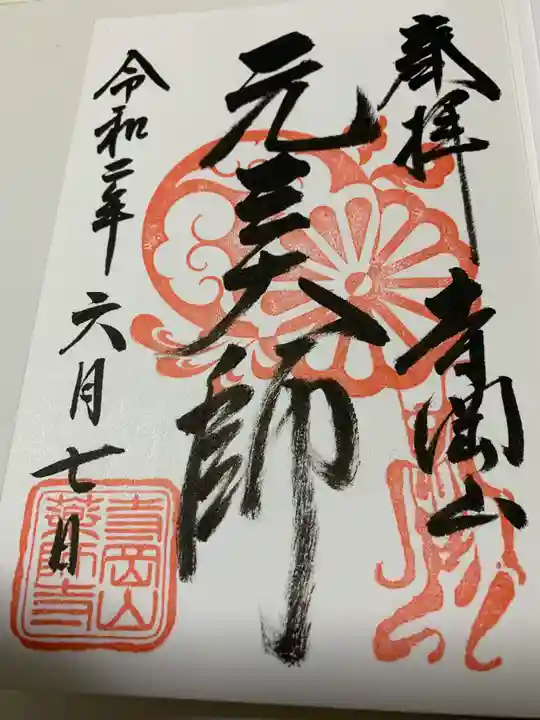 奉拝
吉岡山
元三大師
令和二年
六月七日
吉岡山
薬師寺